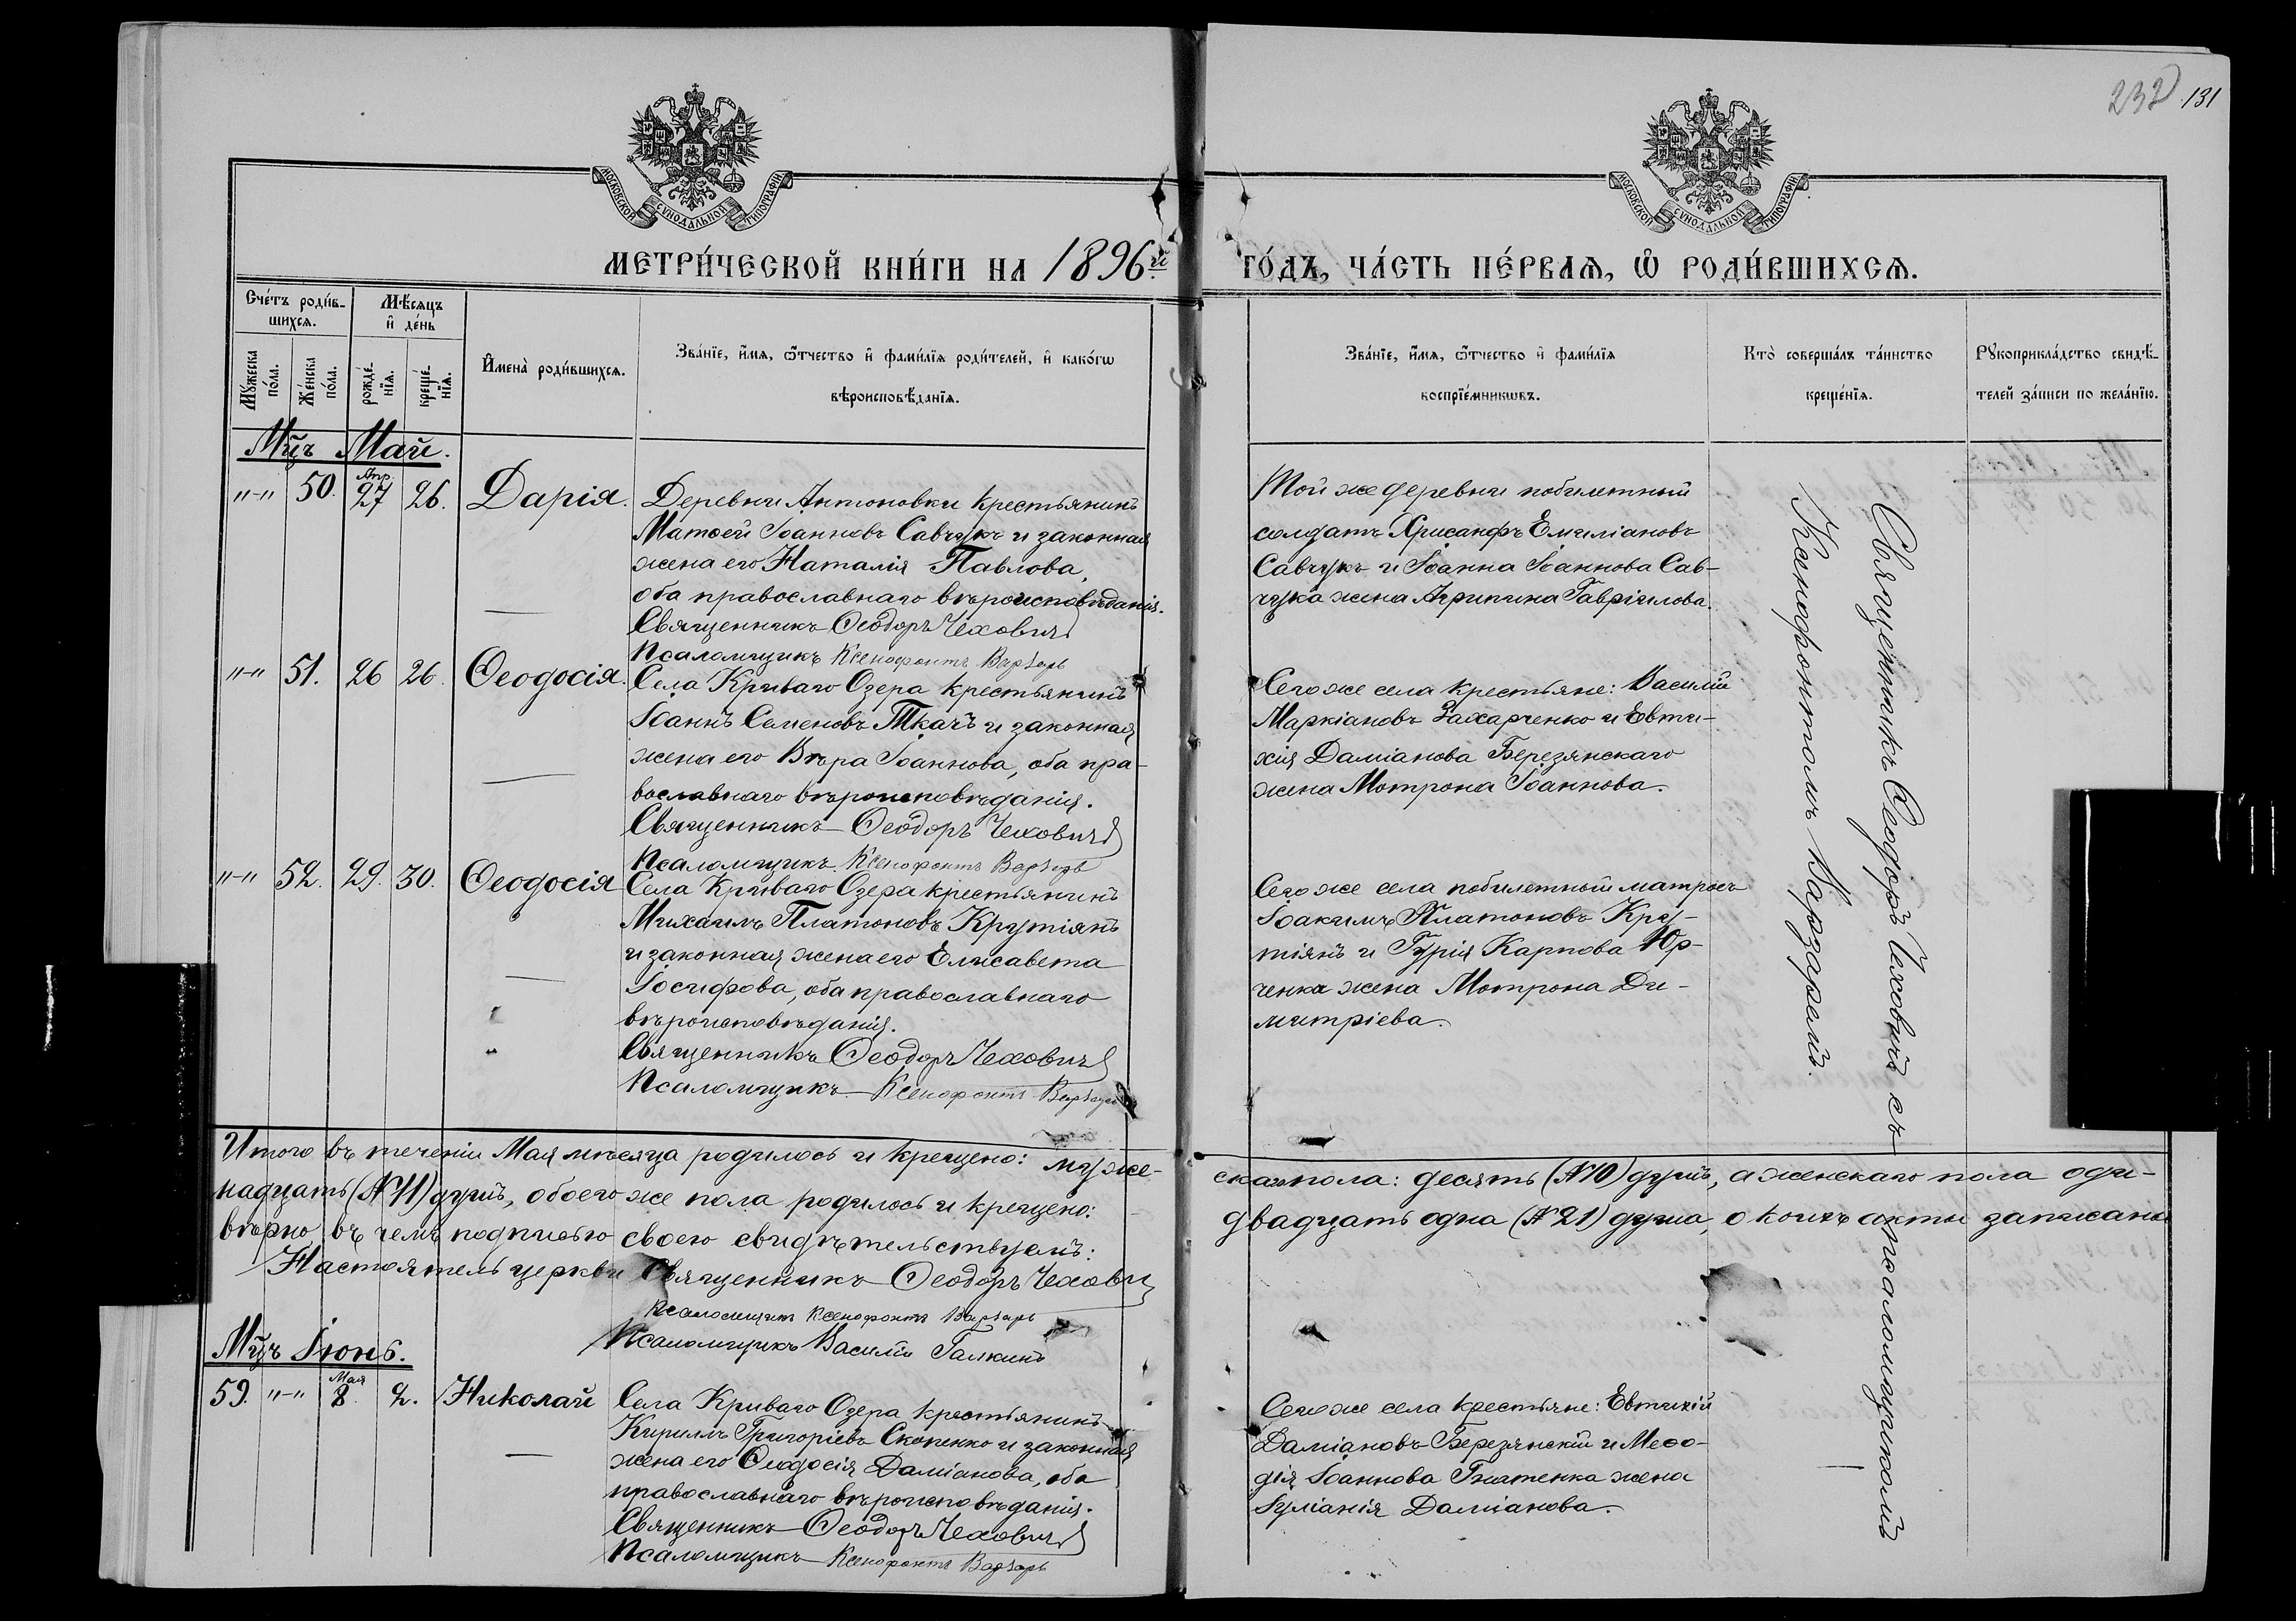 232 131
МОСКОВСКОЙ СѴНОДАЛЬНОЙ ТИПОГРАФІИ
МОСКОВСКОЙ СѴНОДАЛЬНОЙ ТИПОГРАФІИ
МЕТРИ́ЧЕСКОЙ КНИ́ГИ НА 1896й ГО́ДЪ, ЧА́СТЬ ПЕ́РВАЯ, Ѽ РОДИ́ВШИХСЯ.
Сче́тъ роди́в-
шихся.
Мѣ́сяцъ
и҆ де́нь
Му́жеска по́ла.
Же́нска по́ла.
рожде́-
нїя.
креще́-
нїя.
И҆мена̀ роди́вшихся.
Зва́нїе, и҆́мя, ѻ҆́тчество и҆ фами́лїя роди́телей, и҆ како́гѡ
вѣроисповѣ́данїя.
Зва́нїе, и҆́мя, ѻ҆́тчество и҆ фами́лїя
воспрїе́мникѡвъ.
Кто̀ соверша́лъ та́инство
креще́нїя.
Рꙋкоприкла́дство свидѣ́-
телей за́писи по жела́нїю.
Мцъ Май.
"-" 50. Апр. 27 26. Дарія.
Деревни Антоновки крестьянинъ
Матѳей Іоанновъ Савчукъ и законная
жена его Наталія Павлова,
оба православнаго вѣроисповѣданія.
Священникъ Ѳеодоръ Чеховичъ
Псаломщикъ Ксенофонтъ Варзарь
Той же деревни побилетный
солдатъ Хрисанфъ Емиліановъ
Савчукъ и Іоанна Іоаннова Сав-
чука жена Агрипина Гавріилова.
"-" 51. 26 26. Ѳеодосія.
Села Криваго Озера крестьянинъ
Іоаннъ Семеновъ Ткачъ и законная
жена его Вѣра Іоаннова, оба пра-
вославнаго вѣроисповѣданія.
Священникъ Ѳеодоръ Чеховичъ
Псаломщикъ Ксенофонтъ Варзарь
Сего же села крестьяне: Василій
Маркіановъ Захарченко и Евти-
хія Даміанова Березянскаго
жена Мотрона Іоаннова.
"-" 52. 29. 30. Ѳеодосія
Села Криваго Озера крестьянинъ
Михаилъ Платоновъ Крутіянъ
и законная жена его Елисавета
Іосифова, оба православнаго
вѣроисповѣданія.
Священникъ Ѳеодоръ Чеховичъ
Псаломщикъ Ксенофонтъ Варзарь
Сего же села побилетный матросъ
Іоакимъ Платоновъ Кру-
тіянъ и Гурія Карпова Юр-
ченка жена Мотрона Ди-
митріева.
Священникъ Ѳеодоръ Чеховичъ съ псаломщикомъ
Ксенофонтомъ Варзаремъ.
Итого въ теченіи Мая мѣсяца родилось и крещено: муже-
скаго пола: десять (№10) душъ, а женскаго пола оди-
надцать (№11) душъ, обоего же пола родилось и крещено:
двадцать одна (№21) душа, о коихъ акты записаны
вѣрно, въ чемъ подписью своею свидѣтельствуемъ:
Настоятель церкви Священникъ Ѳеодоръ Чехович
Псаломщикъ Ксенофонтъ Варзарь
Псаломщикъ Василій Галкинъ
Мцъ Іюнь.
59. "-" Мая 8. 2. Николай
Села Криваго Озера крестьянинъ
Кириллъ Григоріевъ Скопенко и законная
жена его Ѳеодосія Даміанова, оба
православнаго вѣроисповѣданія.
Священникъ Ѳеодоръ Чеховичъ
Псаломщикъ Ксенофонтъ Варзарь
Сего же села крестьяне: Евтихій
Даміановъ Березянскій и Меѳо-
дія Іоаннова Гнатенка жена
Іуліанія Даміанова.